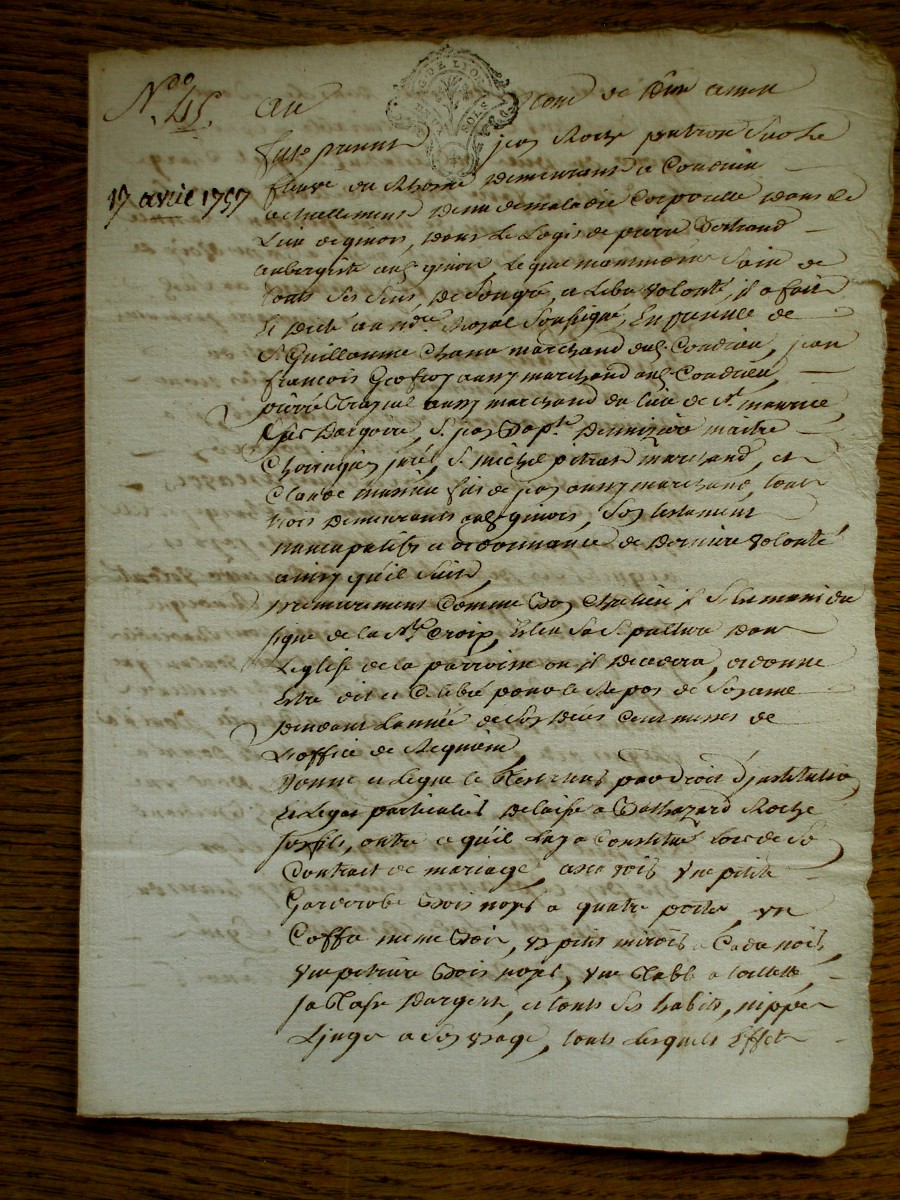 N.º 45.
GEN. DE LYON
SOLS
17 avril 1757
Au nom de Dieu amen
fut present jean Roche patron sur le
fleuve du Rhosne demeurant a Condrieu
actuellement detenu de maladie corporelle dans le
lieu de givors, dans le logis de pierre Bertrand
aubergiste aud. givors, lequel sain de
touts ses sens, de son gré, et libre volonté, il a fait
et dicté au no.re Royal soussigné, En presence de
S.r Guillaume Chana marchand dud. Condrieu, jean
françois Geofroy aussy marchand aud. Condrieu,
pierre aussy marchand du lieu de S.t maurice
sur Dargoire, S.r jean Bap.te maitre
Chirurgien juré, S.r michel marchand, et
Claude fils de jean aussy marchand, touts
trois demeurants aud. givors, son testament
nuncupatif et ordonnance de derniere volonté
ainsy qu'il suit,
premierement comme bon chretien il s'est muni du
signe de la S.te Croix, Eslit sa sepulture dans
l'eglise de la parroisse ou il decedera, ordonne
estre dit et celebré pour le Repos de son ame
pendant l'année de son déces cent messes de
l'office de Requiem,
donne et legue le testateur par droit d'institution
et legat particulier delaisse a Balthazard Roche
son fils, outre ce qu'il luy a constitué lors de so
Contrait de mariage, une petite
Garderobe bois noyé a quatre portes, un
coffre meme bois, un petit miroir a cadre noir,
une petriere bois noyé, une table a toilette,
sa tasse d'argent, et touts ses habits, nippes
Linge a son usage, touts lesquels Effets